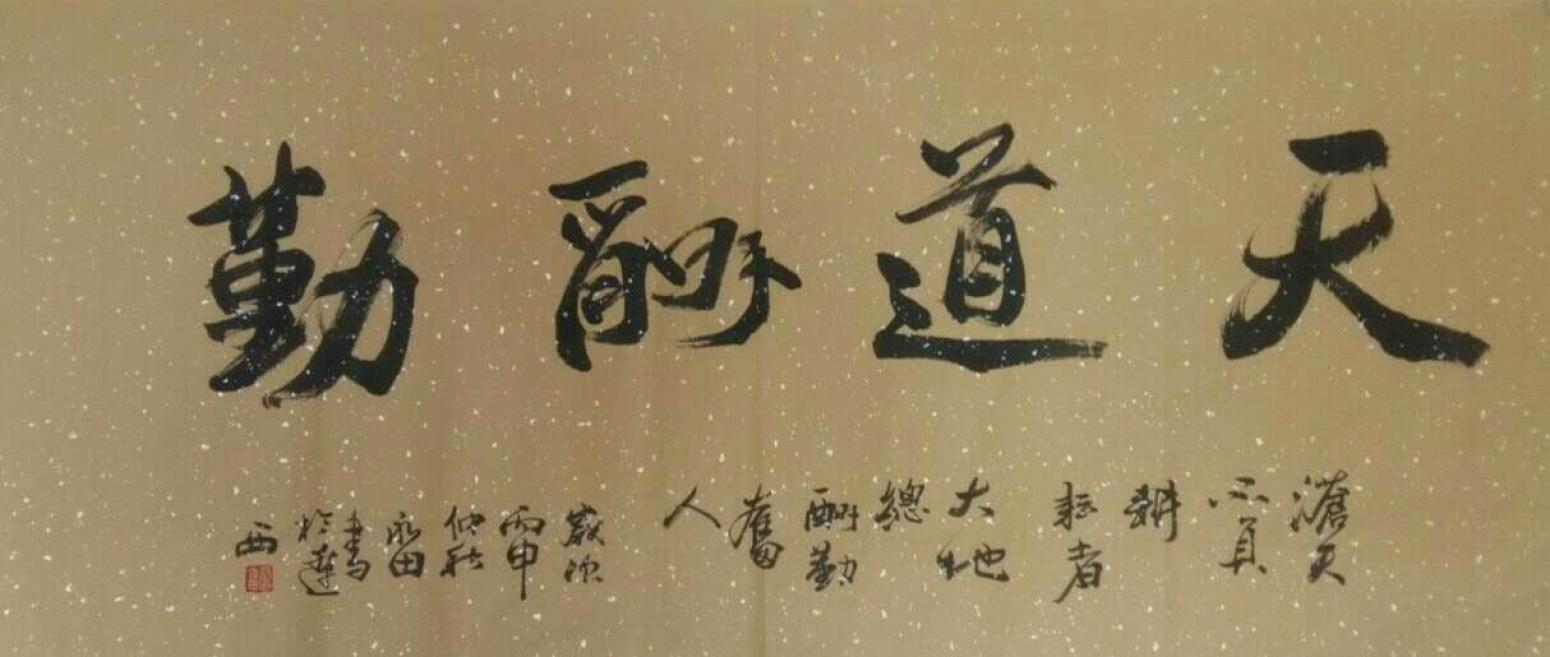 天道酬勤
滄天
不負
耕
耘者
大地
總
酬勤
奮
人
歲次
丙申
仲秋
永田
書
於
西